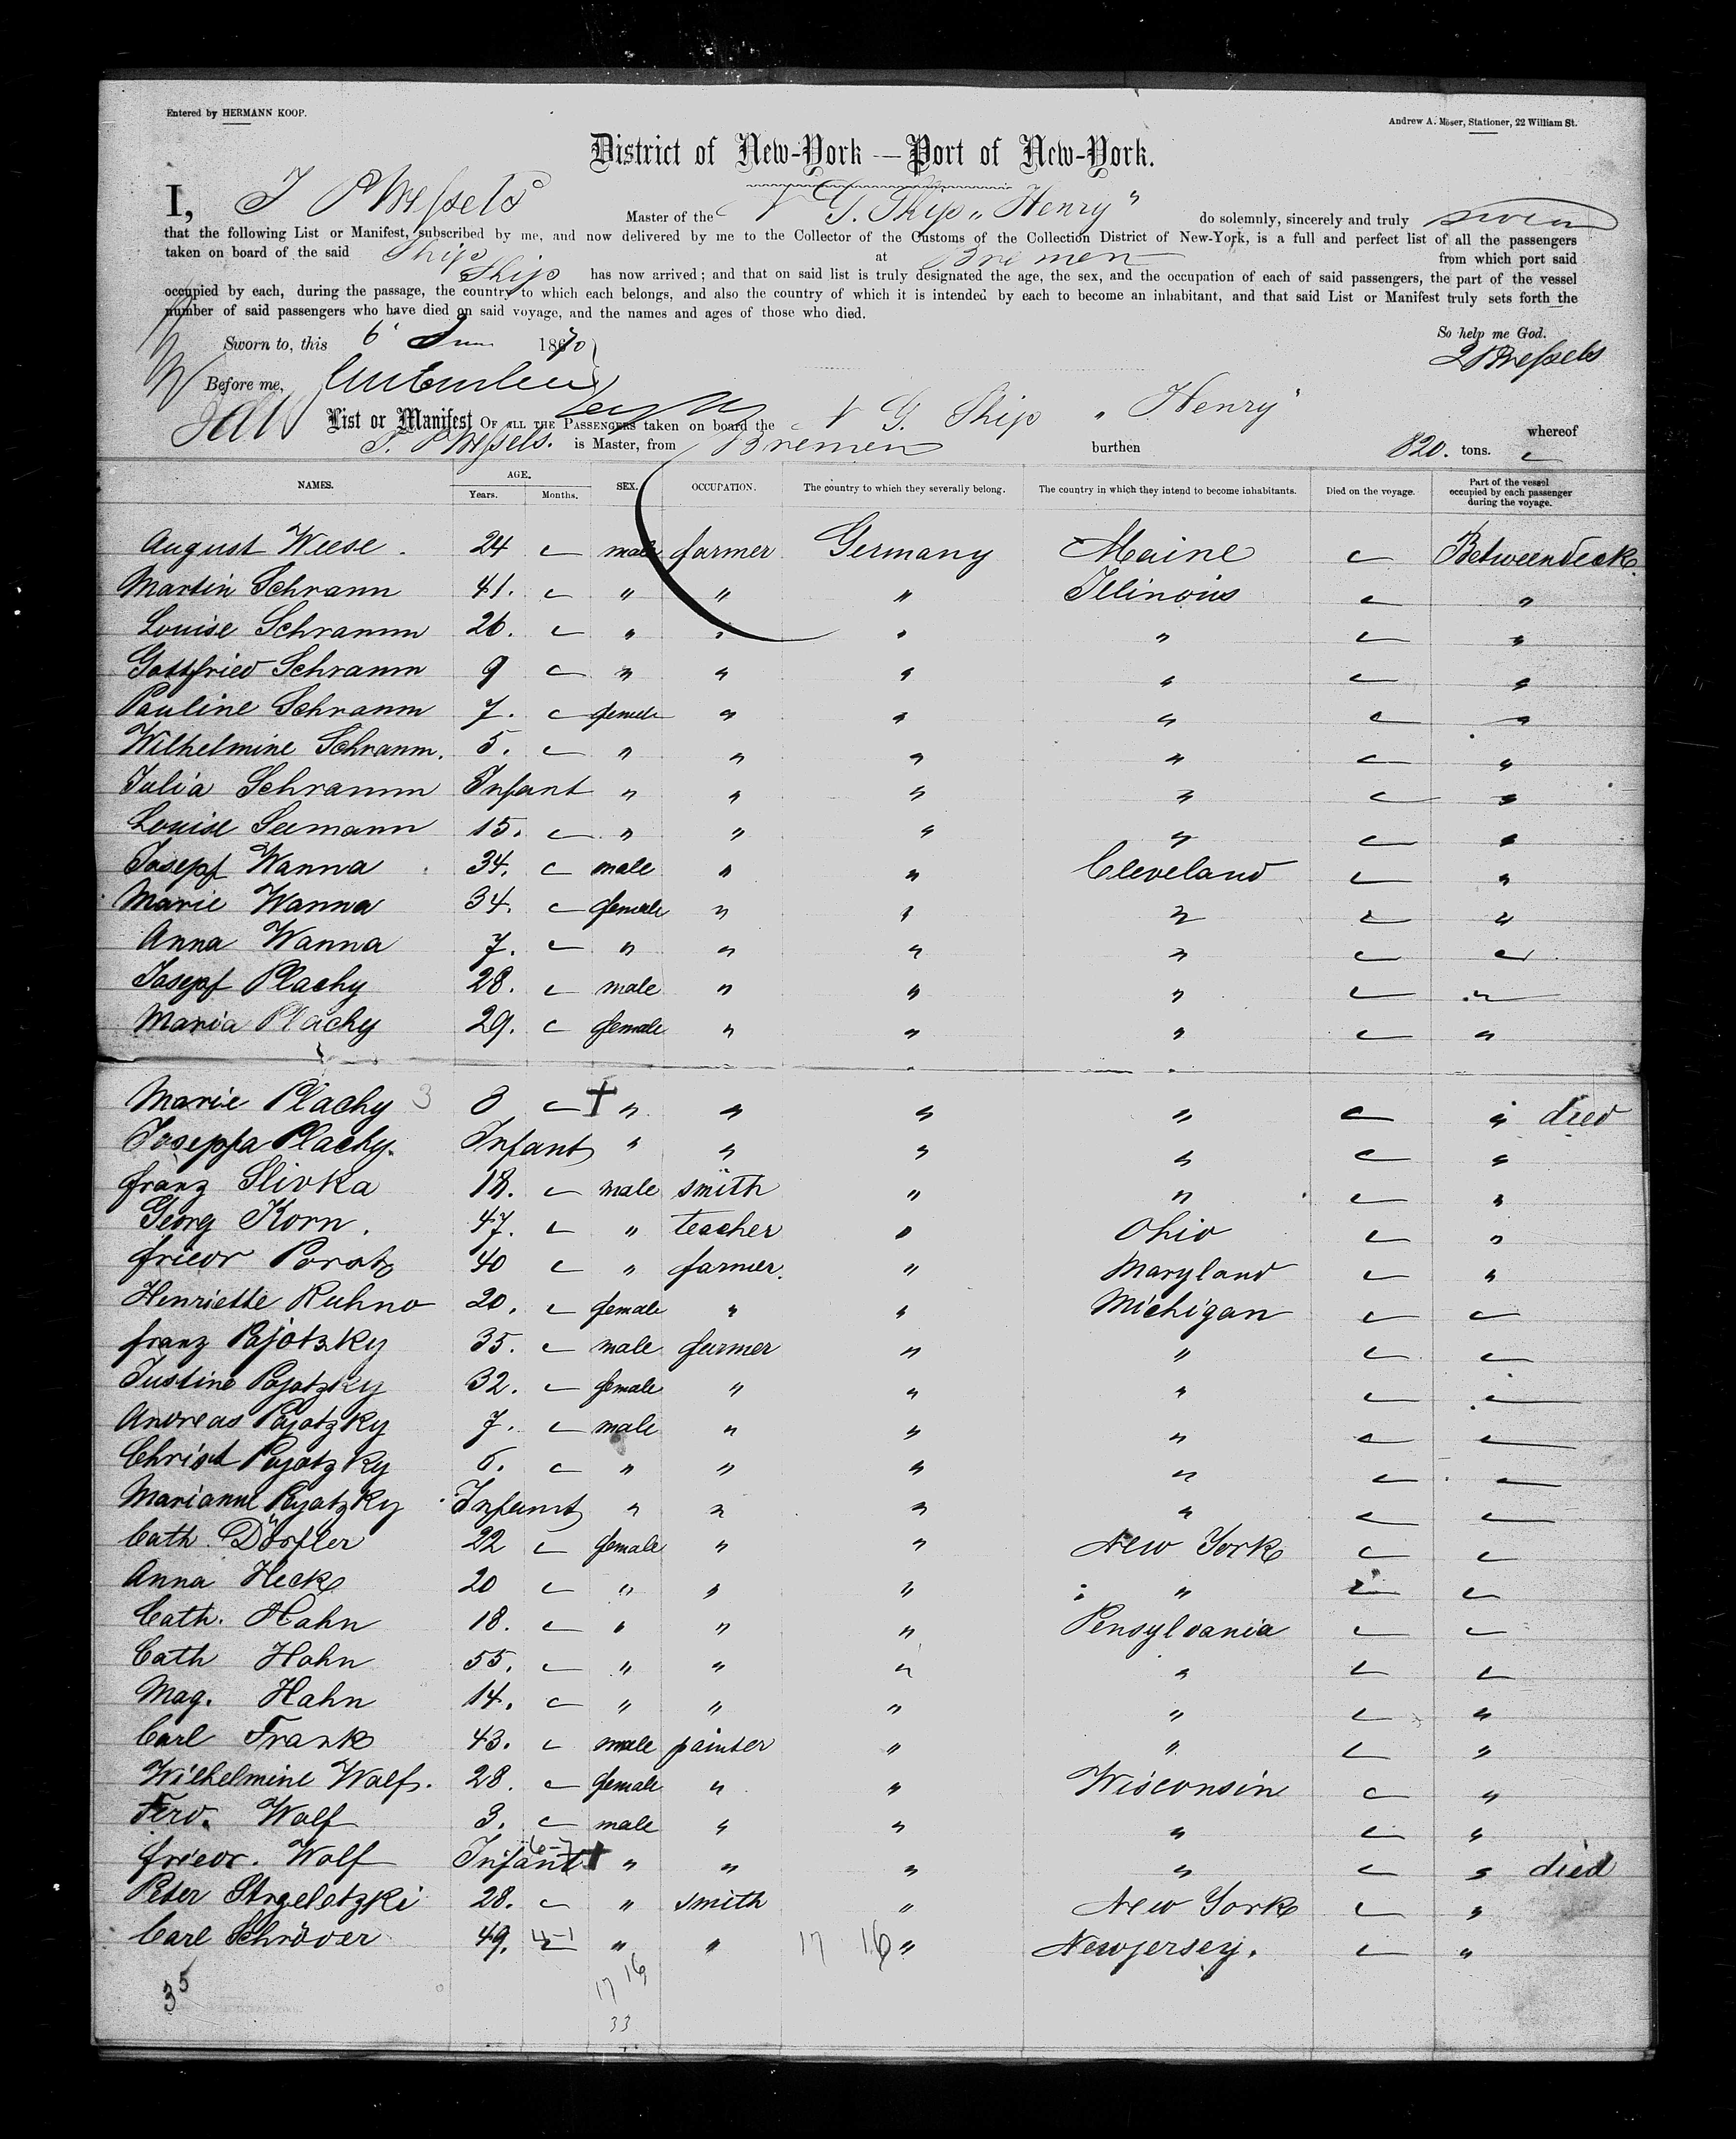 Entered by HERMANN KOOP.
Andrew A. Moser, Stationer, 22 William St.
District of New-York — Port of New-York.
I, J Wessels Master of the N G. Ship „ Henry " do solemnly, sincerely and truly swear
that the following List or Manifest, subscribed by me, and now delivered by me to the Collector of the Customs of the Collection District of New-York, is a full and perfect list of all the passengers
taken on board of the said Ship at Bremen from which port said
Ship has now arrived; and that on said list is truly designated the age, the sex, and the occupation of each of said passengers, the part of the vessel
occupied by each, during the passage, the country to which each belongs, and also the country of which it is intended by each to become an inhabitant, and that said List or Manifest truly sets forth the
number of said passengers who have died on said voyage, and the names and ages of those who died.
So help me God.
Sworn to, this 6 June 1870
Wessels
Before me,
List or Manifest OF ALL THE PASSENGERS taken on board the N G. Ship „ Henry " whereof
Wessels. is Master, from Bremen burthen 820. tons.
NAMES. AGE. Years. Months. SEX. OCCUPATION. The country to which they severally belong. The country in which they intend to become inhabitants. Died on the voyage. Part of the vessel occupied by each passenger during the voyage.
August Weese. 24 male farmer Germany Maine Betweendeck
Martin Schramm 41. " " " Illinois "
Louise Schramm 26. " " " " "
Gottfried Schramm 9 " " " " "
Pauline Schramm 7. female " " " "
Wilhelmine Schramm. 5. " " " " "
Julia Schramm Infant " " " " "
Louise Seemann 15. " " " " "
Josepf Wanna 34. male " " Cleveland "
Marie Wanna 34. female " " " "
Anna Wanna 7. " " " "
Josepf Plachy 28. male " " " "
Maria Plachy 29. female " " " "
Marie Plachy 3 † " " " " " died
Josepfa Plachy. Infant " " " " "
Franz Slivka 18. male smith " " "
Georg Korn. 47. " teacher " Ohio "
Friedr Poratz 40 " farmer. " Maryland "
Henriette Kuhno 20. female " " Michigan
Franz Pajotzky 35. male farmer " "
Justine Pajotzky 32. female " " "
Andreas Pajotzky 7. male " " "
Christ Pajotzky 6. " " " "
Marianne Pajotzky Infant " " " "
Cath. Dörfler 22 female " " New York
Anna Heck 20 " " " "
Cath. Hahn 18. " " " Pensylvania
Cath Hahn 55. " " " "
Mag. Hahn 14. " " " " "
Carl Frank 43. male painter " " "
Wilhelmine Wolf. 28. female " " Wisconsin "
Ferd. Wolf 3. male " " " "
Friedr. Wolf Infant † " " " " " died
Peter Strzeletzki 28. " smith " New York "
Carl Schröder 49. " " 17 16 " Newjersey. "
35
17 16
33